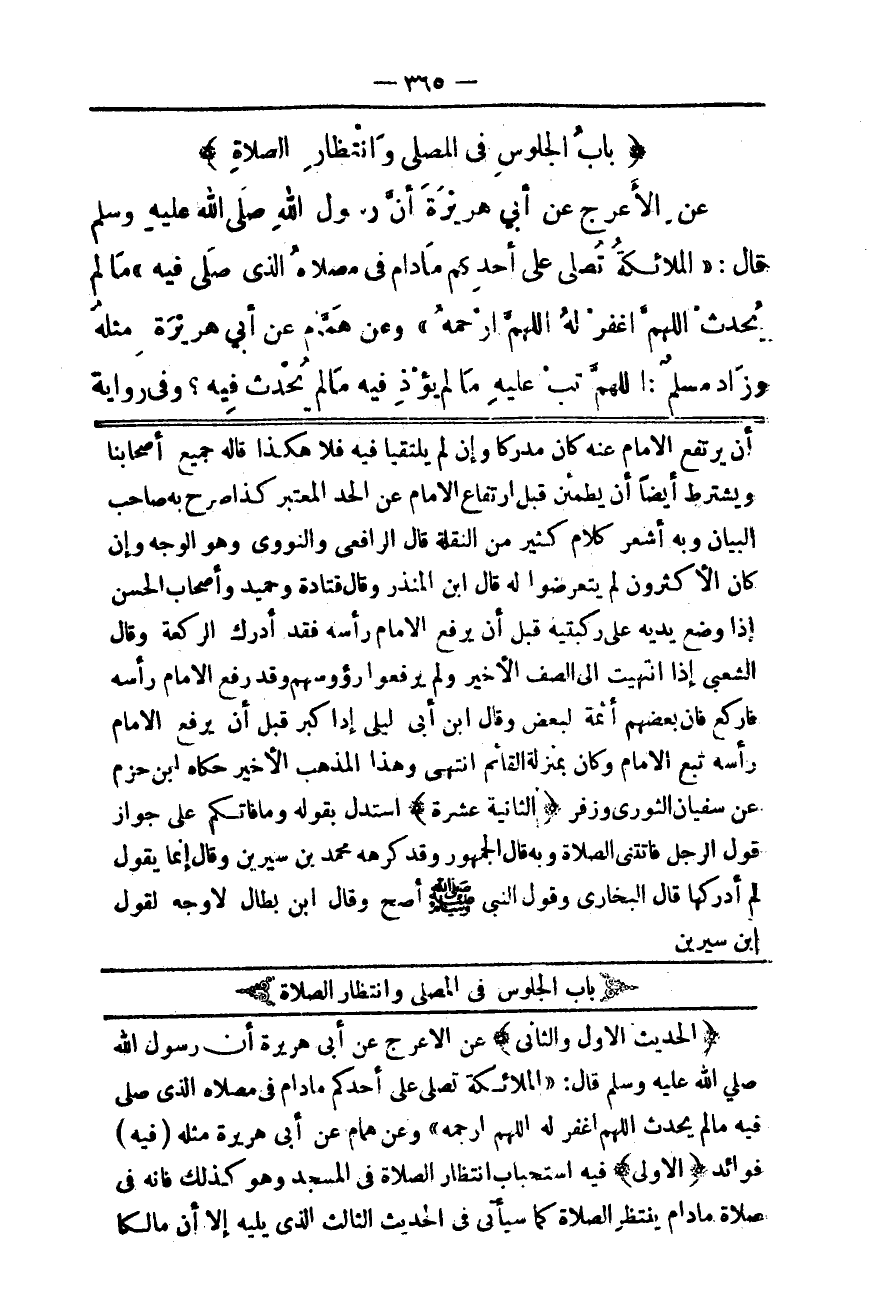 — ٣٦٥ —
﴿ بابُ الجلوسِ فى المصلى وَانْتظارِ الصلاةِ ﴾
عن الأَعرج عن أبي هريْرَةَ أنَّ رسول اللهِ صلَى الله عليهِ وسلم
قال : « الملائكةُ تُصلى على أحدِكم مَادام فى مصلاهُ الذى صلَى فيه » مَا لم
يُحدثْ اللهمَّ اغفرْ لهُ اللهمَّ ارْحمهُ » وعن همَّام عن أبي هريْرَة مثلهُ
وزَاد مسلمٌ : اللهمَّ تبْ عليهِ مَا لم يؤْذِ فيه مَالم يُحْدث فِيه ؟ وفى رواية
أن يرتفع الامام عنه كان مدركا وإن لم يلتقيا فيه فلا هكذا قاله جميع أصحابنا
ويشترط أيضاً أن يطمئن قبل ارتفاع الامام عن الحد المعتبر كذاصرح به صاحب
البيان وبه أشعر كلام كثير من النقلة قال الرافعى والنووى وهو الوجه وإن
كان الأكثرون لم يتعرضوا له قال ابن المنذر وقال قتادة وحميد وأصحاب الحسن
إذا وضع يديه على ركبتيه قبل أن يرفع الامام رأسه فقد أدرك الركعة وقال
الشعبى إذا انتهيت الى الصف الأخير ولم يرفعوا رؤوسهم وقد رفع الامام رأسه
فاركع فان بعضهم أئمة لبعض وقال ابن أبى ليلى إدا كبر قبل أن يرفع الامام
رأسه تبع الامام وكان بمنزلة القائم انتهى وهذا المذهب الأخير حكاه ابن حزم
عن سفيان الثورى وزفر ﴿ الثانية عشرة ﴾ استدل بقوله ومافاتكم على جواز
قول الرجل فاتتنى الصلاة وبه قال الجمهور وقد كرهه محمد بن سيرين وقال إنما يقول
لم أدركها قال البخارى وقول النبى ﷺ أصح وقال ابن بطال لاوجه لقول
ابن سيرين
باب الجلوس فى المصلى وانتظار الصلاة
﴿ الحديث الاول والثانى ﴾ عن الاعرج عن أبى هريرة أن رسول الله
صلي الله عليه وسلم قال : « الملائكة تصلى على أحدكم مادام فى مصلاه الذى صلى
فيه مالم يحدث اللهم اغفر له اللهم ارحمه » وعن همام عن أبى هريرة مثله ( فيه )
فوائد ﴿ الاولى ﴾ فيه استحباب انتظار الصلاة فى المسجد وهو كذلك فانه فى
صلاة مادام ينتظر الصلاة كما سيأتى فى الحديث الثالث الذى يليه إلا أن مالكا